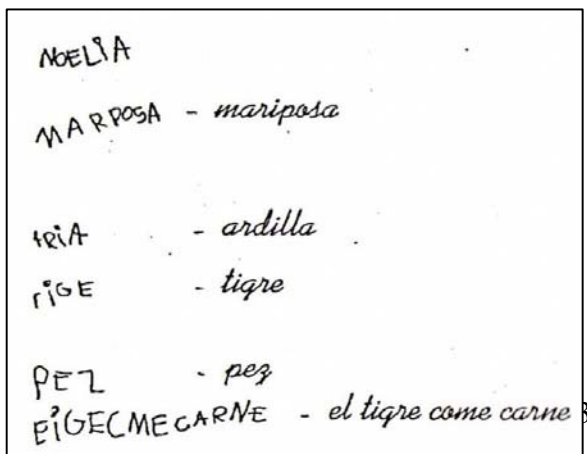 NOELIA
MARPOSA - mariposa
tRiA - ardilla
riGE - tigre
PEZ - pez
EiGECMECARNE - el tigre come carne